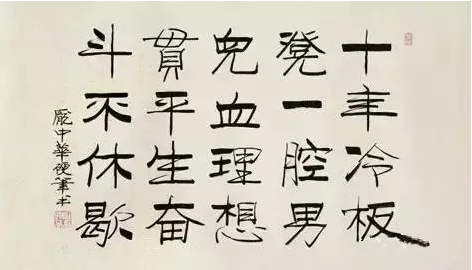 十年冷板
凳一腔男
兒血理想
貫平生奋
斗不休歇
龐中華硬筆书